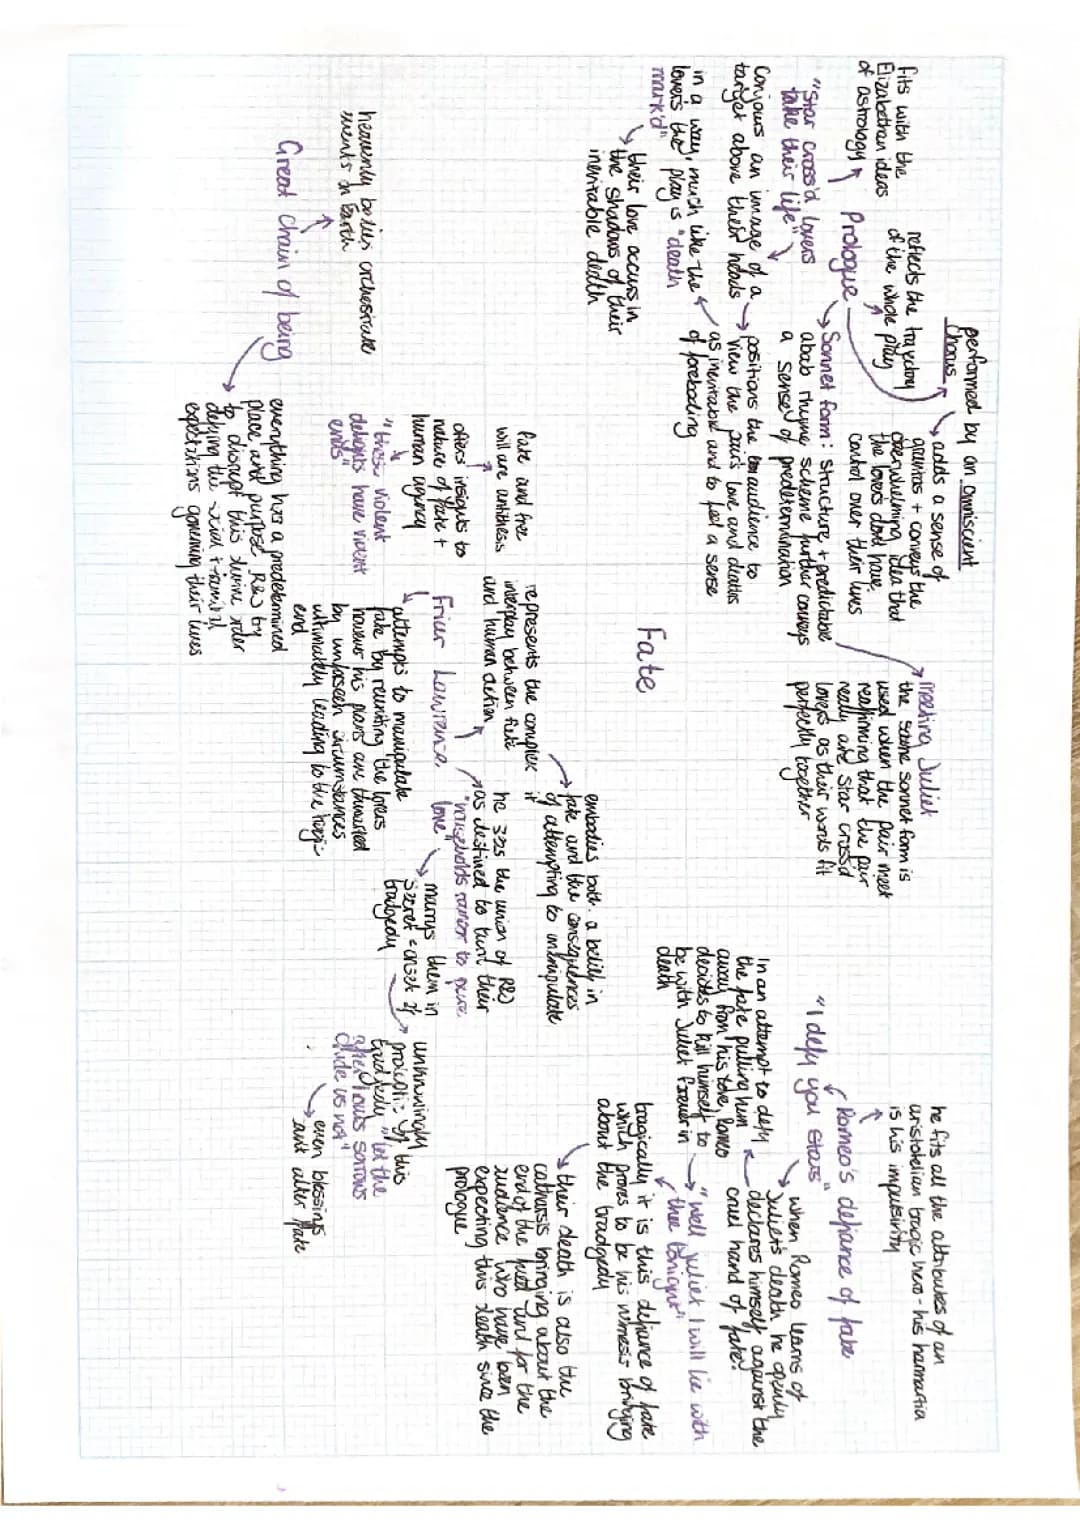 performed by an omniscient
chorus
adds a sense of
gravitas + conveys the
overwhelming idea that
the lovers dont have
control over their lives
reflects the trajectory
of the whole play
fits with the
Elizabethan ideas
of astrology
Prologue
"Star cross'd lovers
take their life"
Conjours an image of a
target above their heads
in a way, much like the
lovers the play is "death
mark'd"
their love occurs in
the shadows of their
inevitable death
Sonnet form: structure + predictable
abab rhyme scheme further conveys
a sense of predetermination
positions the audience to
view the pair's love and deaths
as inevitable and to feel a sense
of foreboding
Meeting Juliet
the same sonnet form is
used when the pair meet
reaffirming that the pair
really are star cross'd
lovers as their words fit
perfectly together
Fate
he fits all the attributes of an
aristotelian tragic hero - his hamartia
is his impulsivity
Romeo's defiance of fate
"I defy you stars"
when Romeo learns of
Juliet's death he openly
declares himself against the
cruel hand of fate.
In an attempt to defy
the fate pulling him
away from his love, Romeo
decides to kill himself to
be with Juliet forever in
death
"well Juliet I will lie with
thee tonight"
tragically it is this defiance of fate
which proves to be his nemesis bringing
about the tradgedy
their death is also the
catharsis bringing about the
end of the fued and for the
audience who have been
expecting this death since the
prologue
embodies both a belief in
fate and the consequences
of attempting to manipulate
it
represents the complex
interplay between fate
and human action
fate and free
will are antithesis
offers insights to
nature of fate +
human agency
"these violent
delights have violent
ends"
Friar Lawrence
he sees the union of R&J
as destined to turn their
"households rancor to pure
love"
marrys them in
secret = onset of
tradgedy
unknowingly
of this
tradgedy "let the
after hours sorrows
chide us not"
even blessings
cant alter fate
attempts to manipulate
fate by reuniting the lovers
however his plans are thwarted
by unforseen circumstances
ultimately leading to the tragic
end
heavenly bodies orchestrate
events on Earth
Great chain of being
everything has a predetermined
place and purpose. R&J by
to disrupt this divine order
defying the social + familial
expectations governing their lives